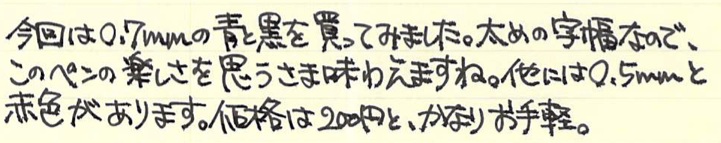 今回は0.7mmの青と黒を買ってみました。太めの字幅なので、
このペンの楽しさを思うさま味わえますね。他には0.5mmと
赤色があります。価格は200円と、かなりお手軽。